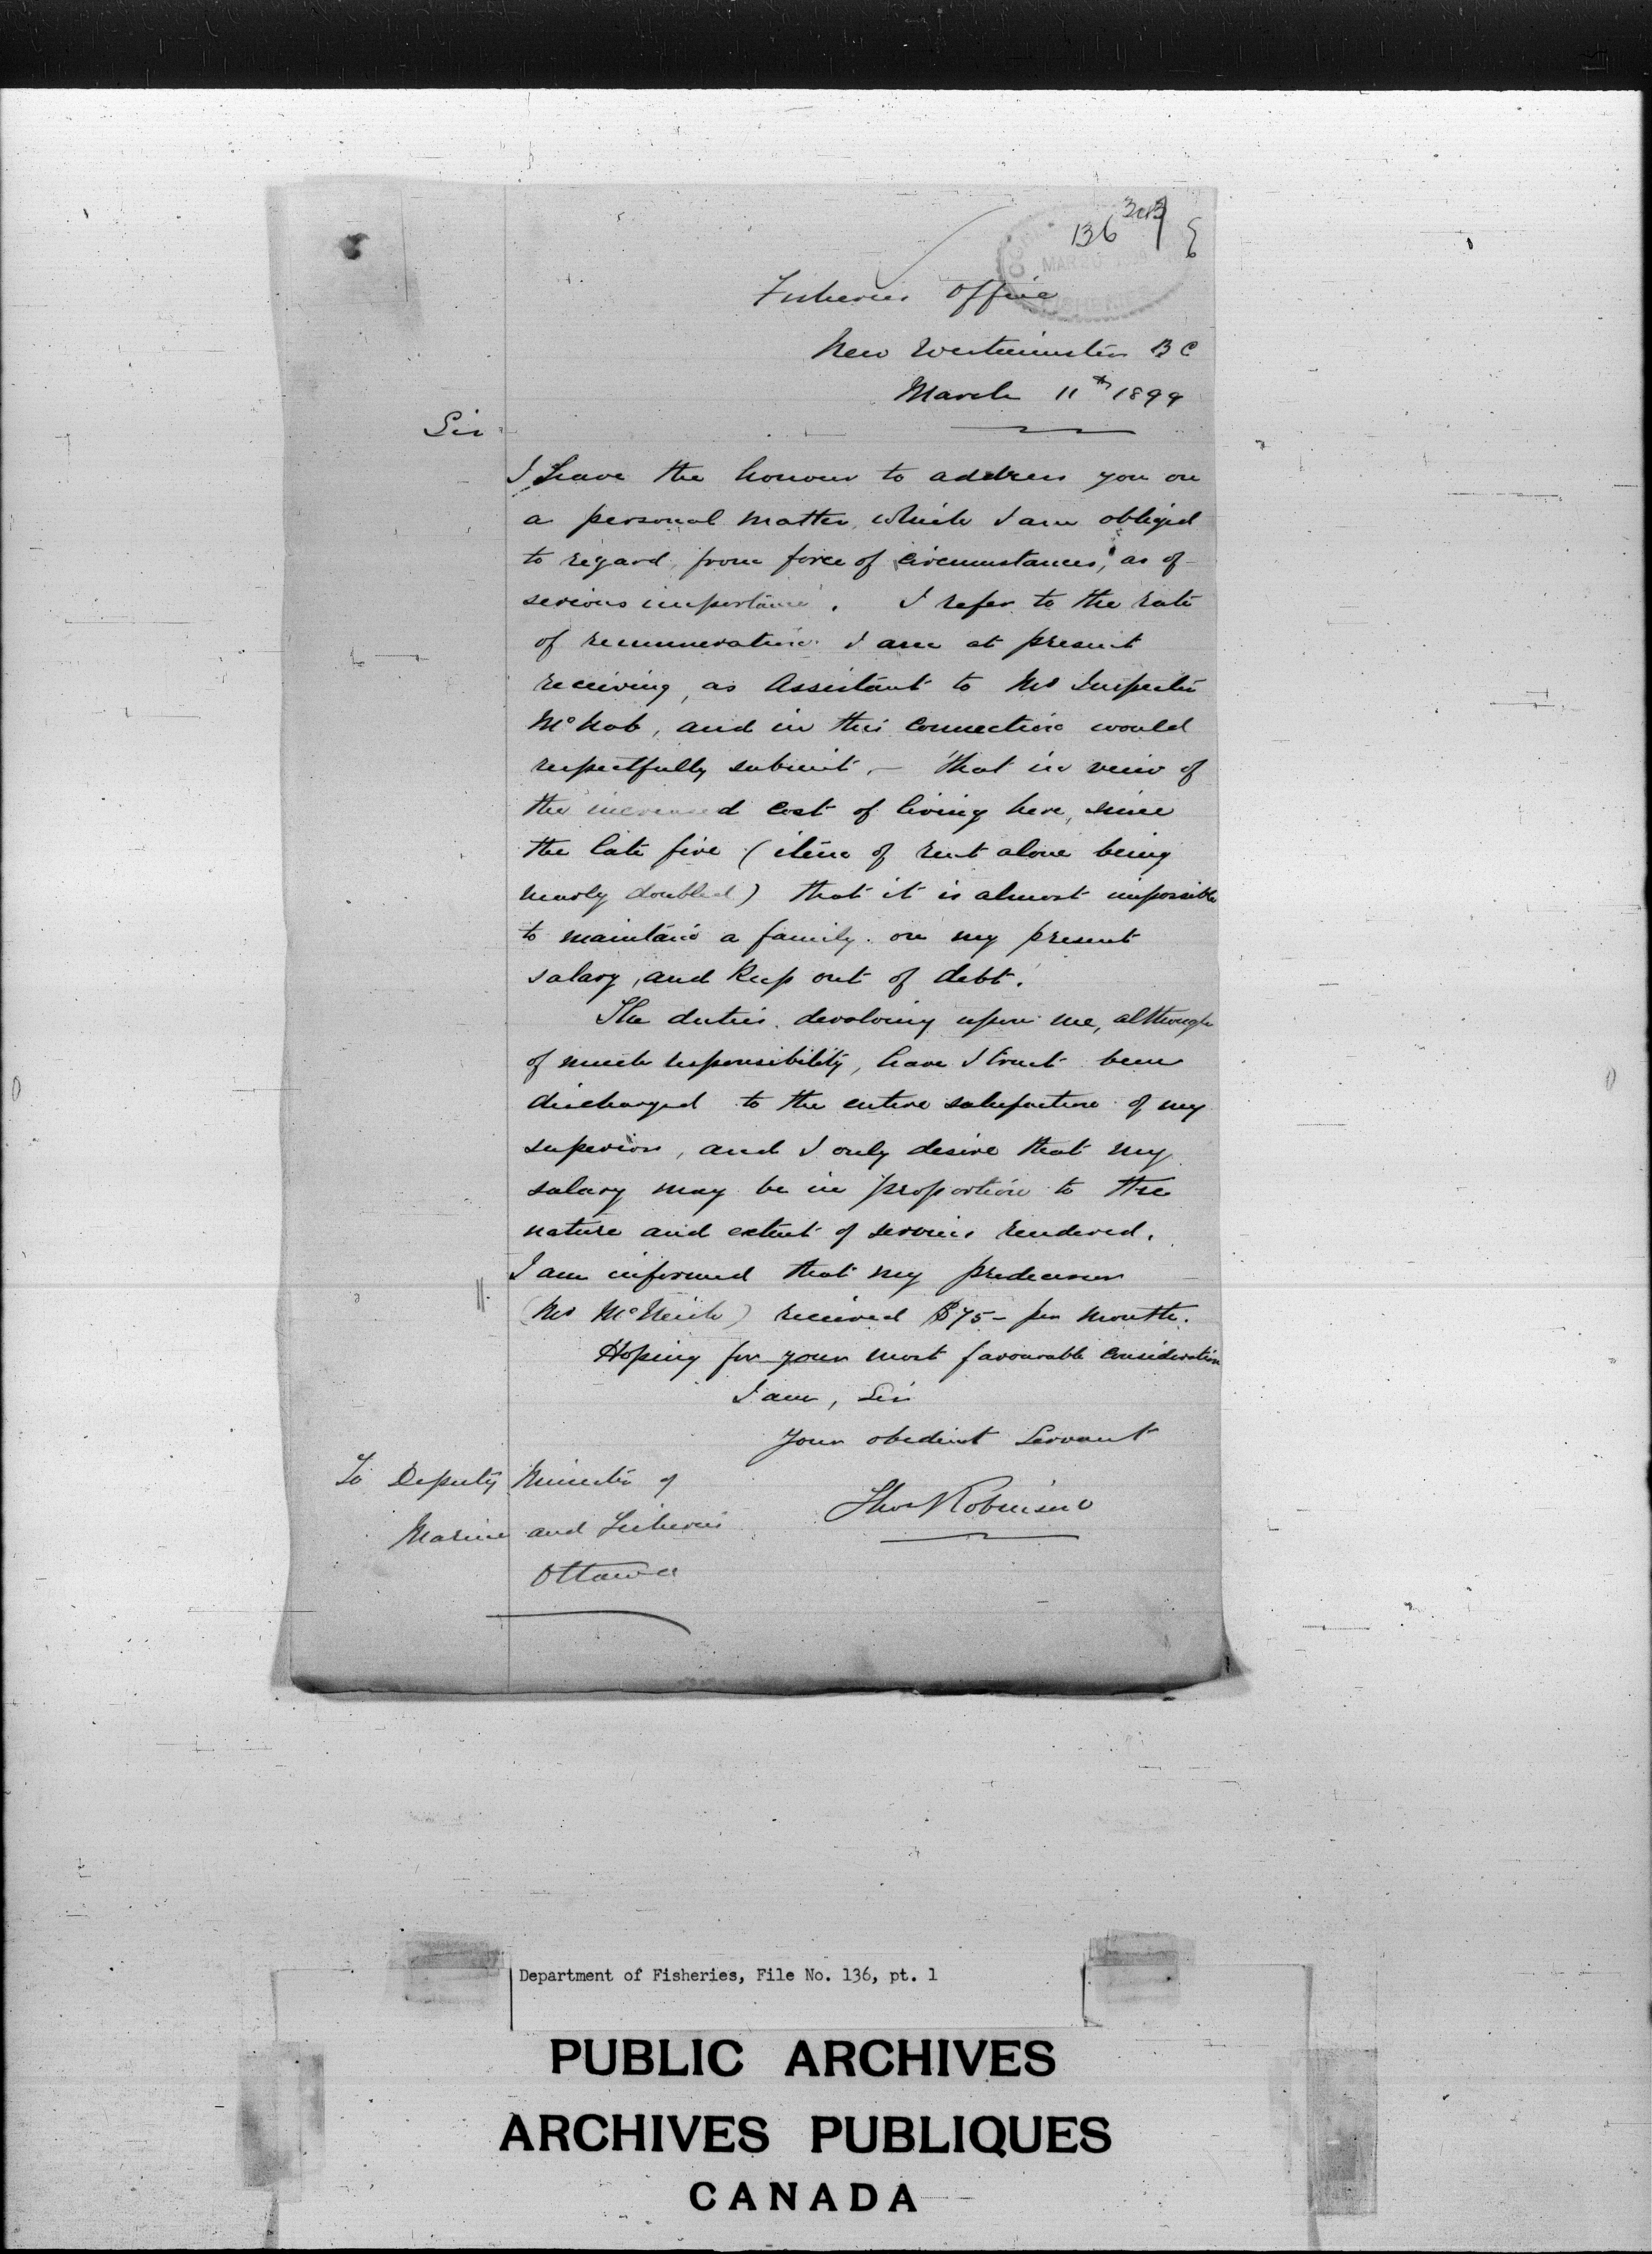 136
Fisheries Office
New Westminster B C
March 11th 1899
Sir
I have the honour to address you on
a personal matter, which I am obliged
to regard, from force of circumstances, as of
serious importance. I refer to the rate
of remuneration I am at present
receiving, as Assistant to Mr Inspector
McNab, and in this connection would
respectfully submit, — that in veiw of
the increased cost of living here, since
the late fire (item of rent alone being
nearly doubled) that it is almost impossible
to maintain a family on my present
salary, and keep out of debt.
The duties devolving upon me, although
of much responsibility, have I trust been
discharged to the entire satisfaction of my
superiors, and I only desire that my
salary may be in proportion to the
nature and extent of services rendered.
I am informed that my predecessor
(Mr ) received $75– per month.
Hoping for your most favourable consideration
I am, Sir
Your obedient Servant
Thos Robinson
To Deputy Minister of
Marine and Fisheries
Ottawa
Department of Fisheries, File No. 136, pt. 1
PUBLIC ARCHIVES
ARCHIVES PUBLIQUES
CANADA